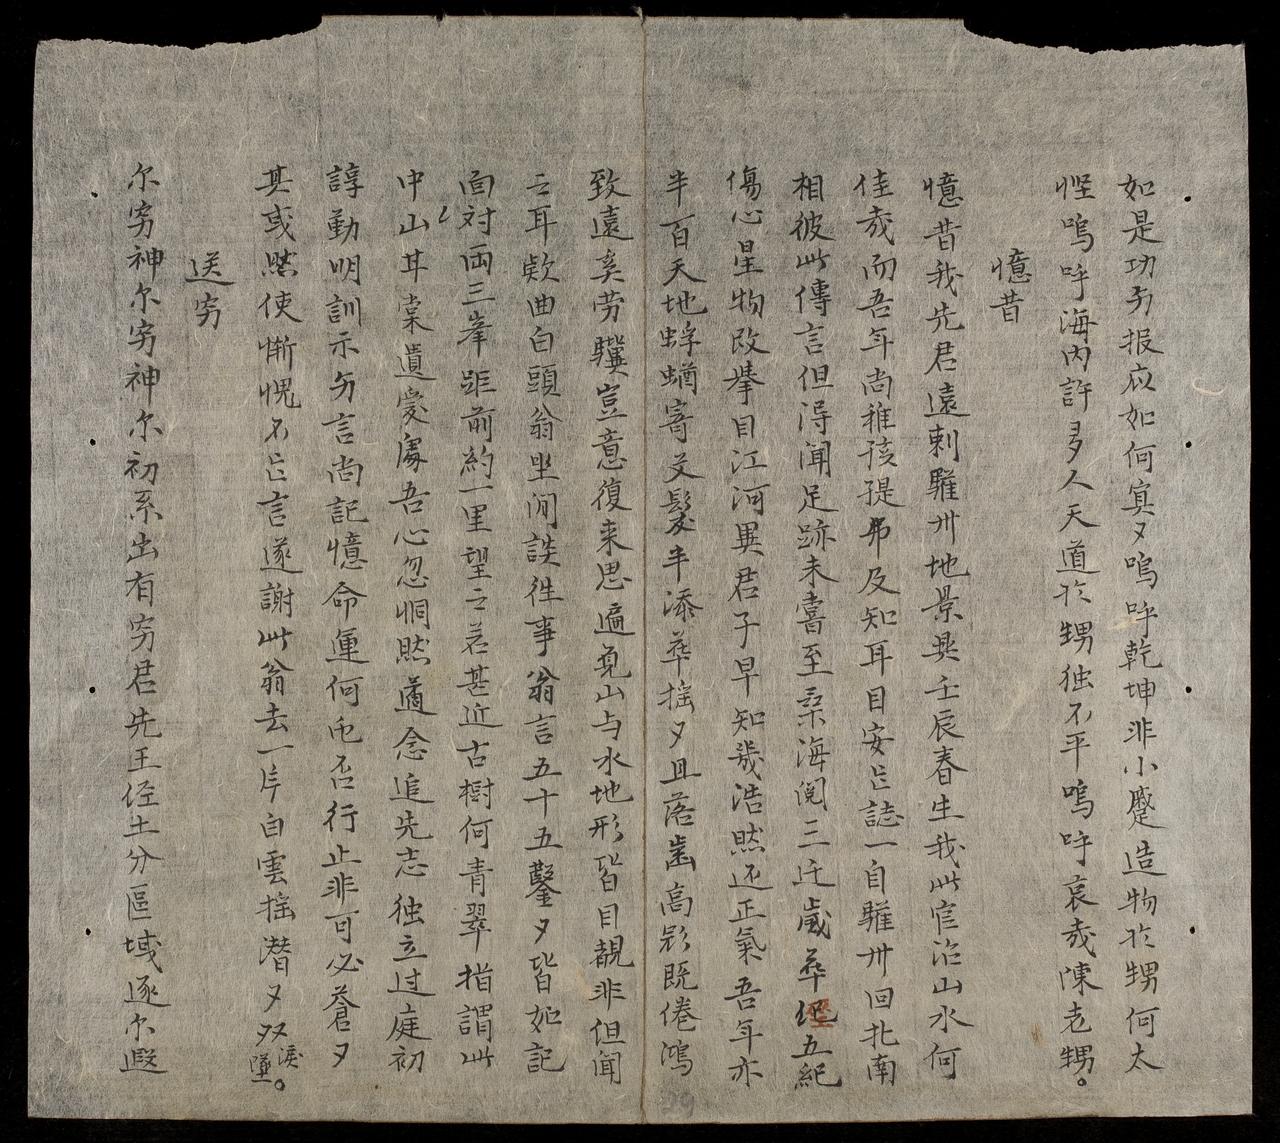 如是功勞报应如何寞〻嗚呼乾坤非小蹙造物於甥何太
慳嗚呼海內許多人天道於甥独不平嗚呼哀哉陳老甥。
憶昔
憶昔我先君遠刺驩州地景興壬辰春生我此官治山水何
佳哉而吾年尚稚孩提弗及知耳目安忘誌一自驩州回北南
相彼此傳言但得聞足跡未嘗至桑海閱三迁歲華五紀
傷心星物改擧目江河異君子早知幾浩然还正氣吾年亦
半百天地蜉蝤寄爻髮半添華摇〻且落齒高飛既倦鴻
致遠奚劳驥豈意復来思遍覓山与水地形皆目覩非但聞
之耳欵曲白頭翁坐閒談往事翁言五十五鑿〻皆如記
面対両三峯距前約一里望之若甚近古樹何青翠指謂此
中山甘棠遺愛處吾心忽恫然遹念追先志独立过庭初
諄勤明訓示勞言尚記憶命運何屯否行止非可必蒼〻
其或然使慚愧不忘言遂謝此翁去一片白雲摇潜〻双淚墜。
送穷
尔穷神尔穷神尔初系出有穷君先王经土分區域逐尔遐